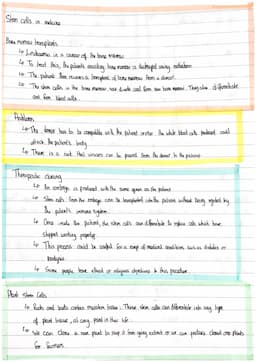 Stem cells in medicine
Bone marrow transplants
↳ Leukaemia is a cancer of the bone marrow.
↳ To treat this, the patient's existing bone marrow is destroyed using radiation
↳ The patient then receives a transplant of bone marrow from a donor.
↳ The stem cells in the bone marrow now divide and form new bone marrow. They also differentiate
and form blood cells.
Problems
↳ The donor has to be compatible with the patient or else the white blood cells produced could
attack the patient's body
↳ There is a risk that viruses can be passed from the donor to the patient
Therapeutic cloning
↳ An embryo is produced with the same genes as the patient
↳ Stem cells from the embryo can be transplanted into the patient without being rejected by
the patient's immune system.
↳ Once inside the patient, the stem cells can differentiate to replace cells which have
stopped working properly
↳ This process could be useful for a range of medical conditions such as diabetes or
paralysis.
↳ Some people have ethical or religious objections to this procedure
Plant Stem Cells
↳ Roots and buds contain meristem tissue. These stem cells can differentiate into any type
of plant tissue, at any point in its life.
↳ We can clone a rare plant to stop it from going extinct or we can produce cloned crop plants
for farmers.